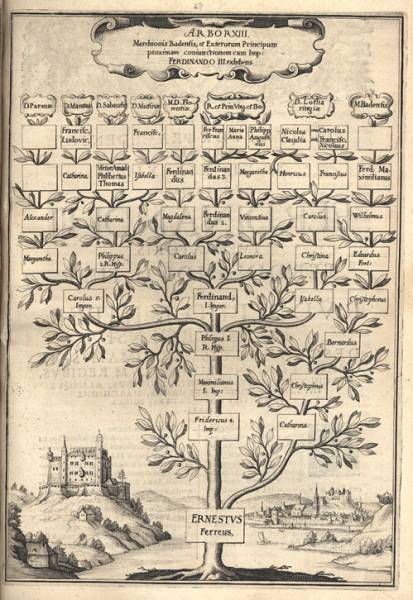 ARBOR XIII.
Marchionis Badensis, et Exterorum Principum
proximam coniunctionem cum Imp:
FERDINANDO III. exhibens.
D. Parmæ D. Mantuæ D. Sabaudiæ D. Mutinæ M.D. Flo-
rentiæ R. et Prin. Vng. et Bo. D. Lotha
ringiæ M. Badensis
Francisc.
Ludovic. Francisc. Fer. Fran
ciscus Maria
Anna Philipp
Nicolea
Claudia Carolus
Francisc.
Nicolaus
Catharina Victor Amad
Philibertus
Thomas Isabella Ferdinan
dus Ferdinan
dus 3. Margaretha Henricus Franciscus Ferd. Ma-
ximilianus
Alexander Catharina Magdalena Ferdinan
dus 2. Vincentius Carolus. Wilhelmus
Margaretha Philippus
2. R. Hisp. Carolus Leonora Christina Eduardus
Fort:
Carolus 5.
Imper. Ferdinand9
I. Imper. Isabella Christophorus
Philippus I.
R. Hisp. Bernardus
Maximilianus
I. Imp: Christophorus
Fridericus 4.
Imp: Catharina
ERNESTVS
Ferreus.